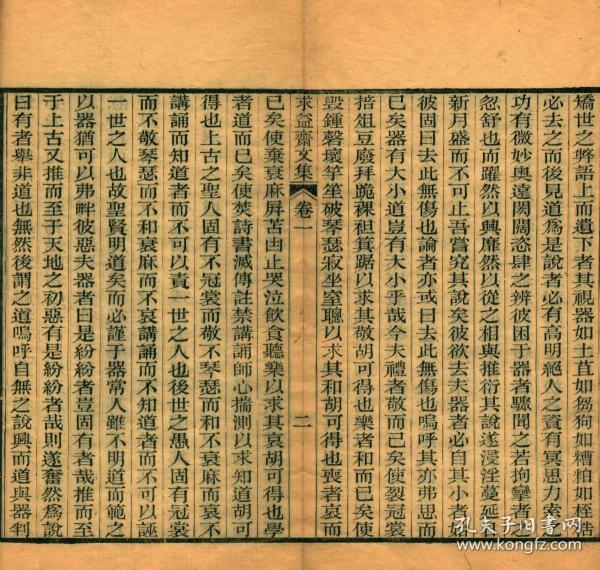 矯世之弊語上而遺下者其視器如土苴如芻狗如糟粕如桎梏
必去之而後見道爲是說者必有高明絕人之資有冥思力索
功有微妙奧遠閎闊恣肆之辨彼困于器者驟聞之若拘攣者之
忽舒也而躍然以興靡然以從之相與推衍其說遂浸淫蔓延
新月盛而不可止吾嘗究其說矣彼欲去夫器者必自其小者
彼固曰去此無傷也論者亦或曰去此無傷也嗚呼其亦弗思而
已矣器有大小道豈有大小乎哉今夫禮者敬而已矣使裂冠裳
掊俎豆廢拜跪裸袒箕踞以求其敬胡可得也樂者和而已矣使
毀鍾磬壞竽笙破琴瑟寂坐室聽以求其和胡可得也喪者哀而
求益齋文集 卷一 二
已矣使棄衰麻屏苫凷止哭泣飲食聽樂以求其哀胡可得也學
者道而已矣使焚詩書滅傳註禁講誦師心揣測以求知道胡可
得也上古之聖人固有不冠裳而敬不琴瑟而和不衰麻而哀不
講誦而知道者而不可以責一世之人也後世之愚人固有冠裳
而不敬琴瑟而不和衰麻而不哀講誦而不知道者而不可以誣
一世之人也故聖賢明道矣而必謹于器常人雖不明道而範之
以器猶可以弗畔彼惡夫器者曰是紛紛者豈固有者哉推而至
于上古又推而至于天地之初惡有是紛紛者哉則遂奮然爲說
曰有者舉非道也無然後謂之道嗚呼自無之說興而道與器判
孔夫子旧书网
www.kongfz.com